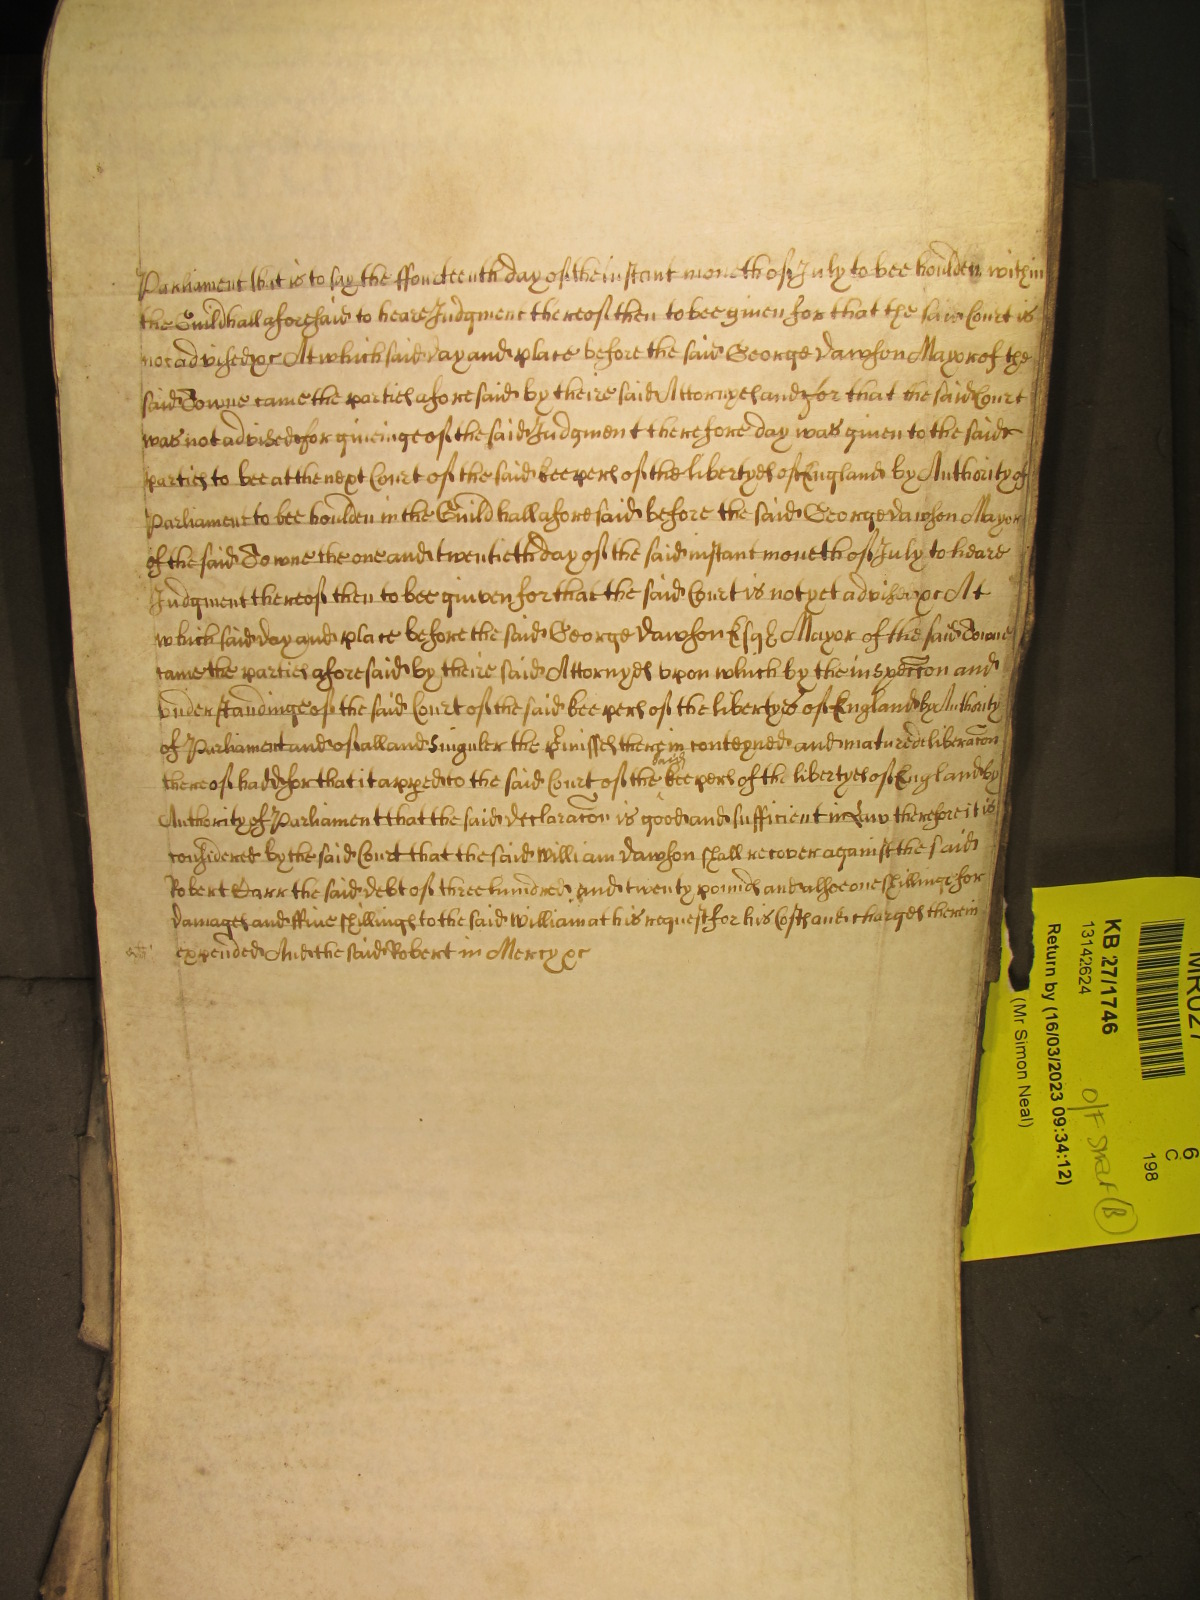 Parliament that is to say the ffourteenth day of the instant moneth of July to bee houlden within
the Guildhall aforesaid to heare Judgment thereof then to bee given for that the said Court is
not advised &c At which said day and place before the said George Dawson Mayor of the
said Towne came the parties aforesaid by theire said Attornyes and for that the said Court
was not advised for giveinge of the said Judgment therefore day was given to the said
parties to bee at the next Court of the said keepers of the libertyes of England by Authority of
Parliament to bee houlden in the Guildhall aforesaid before the said George Dawson Mayor
of the said Towne the one and twentieth day of the said instant moneth of July to heare
Judgment thereof then to bee given for that the said Court is not yet advised &c At
which said day and place before the said George Dawson Esqr Mayor of the said Towne
came the parties aforesaid by theire said Attornyes upon which by the inspeccon and
understandinge of the said Court of the said keepers of the libertyes of England by Authority
of Parliament and of all and Singuler the Pmisses therein conteyned and mature deliberacon
thereof had for that it apped to the said Court of the said keepers of the libertyes of England by
Authority of Parliament that the said declaracon is good and sufficient in Law therefore it is
considered by the said Court that the said William Dawson shall recover against the said
Robert Carr the said debt of three hundred and twenty pounds and alsoe one shillinge for
damages and ffive shillings to the said William at his request for his Costs and charges therein
expended And the said Robert in Mercy &c
MR027
KB 27/1746
13142624
Return by (16/03/2023 09:34:12)
(Mr Simon Neal)
6
C
198
O/F
B